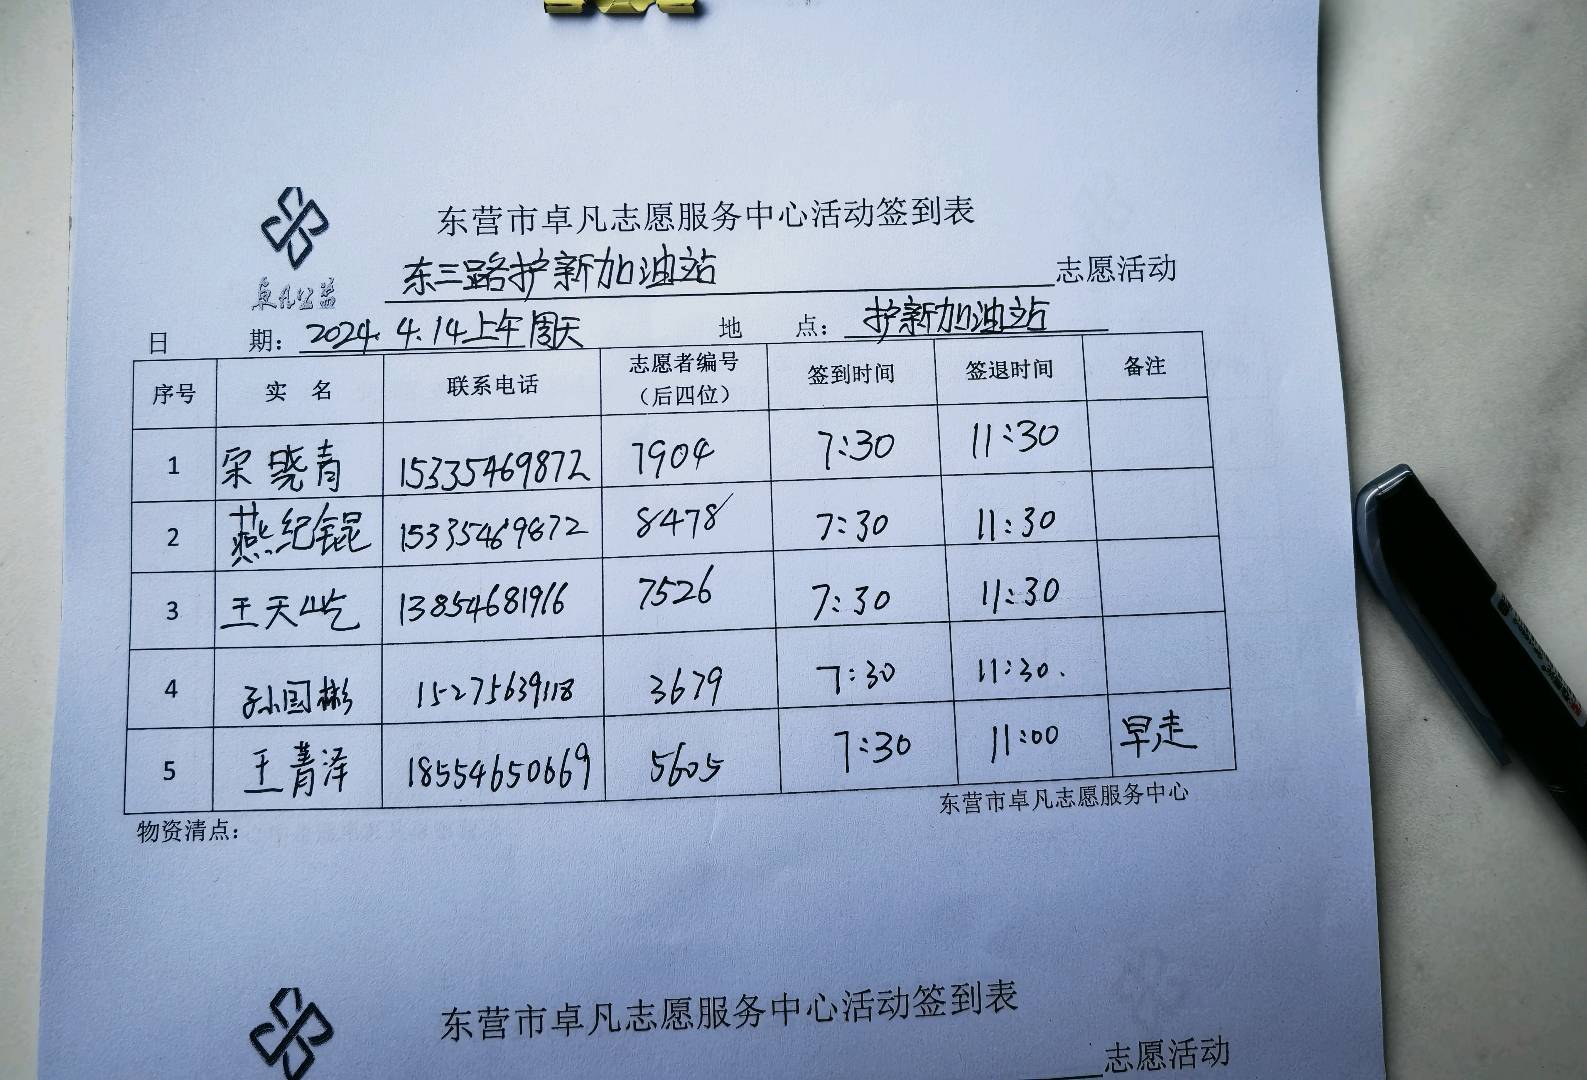 东营市卓凡志愿服务中心活动签到表
卓凡公益
东三路护新加油站 志愿活动
日 期：2024.4.14上午周天 地 点：护新加油站
序号 实 名 联系电话 志愿者编号（后四位） 签到时间 签退时间 备注
1 宋晓青 15335469872 7904 7:30 11:30
2 燕纪锟 15335469872 8478 7:30 11:30
3 王天屹 13854681916 7526 7:30 11:30
4 孙国彬 15275639118 3679 7:30 11:30.
5 王菁泽 18554650669 5605 7:30 11:00 早走
物资清点： 东营市卓凡志愿服务中心
东营市卓凡志愿服务中心活动签到表
志愿活动